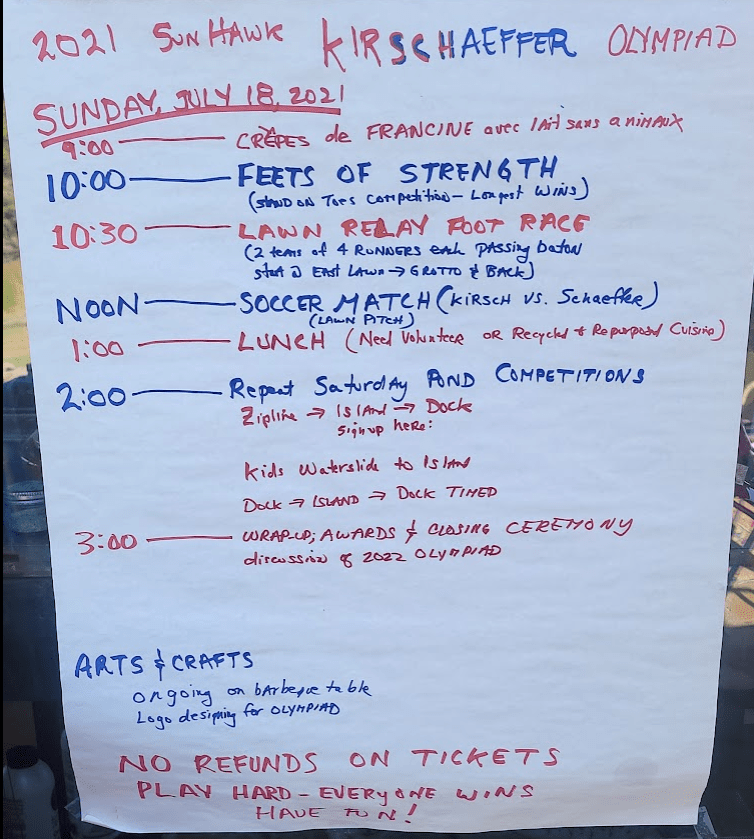 2021 SUNHAWK KIRSCHAEFFER OLYMPIAD
SUNDAY, JULY 18, 2021
9:00 — CRÊPES de FRANCINE avec lait sans animaux
10:00 — FEETS OF STRENGTH
(STAND ON TOES COMPETITION – LONGEST WINS)
10:30 — LAWN RELAY FOOT RACE
(2 teams of 4 RUNNERS each PASSING baton
start @ EAST LAWN → GROTTO & BACK)
NOON — SOCCER MATCH (KIRSCH VS. Schaeffer)
(LAWN PITCH)
1:00 — LUNCH (Need Volunteer OR Recycled & Repurposed Cuisine)
2:00 — Repeat Saturday POND COMPETITIONS
Zipline → ISLAND → DOCK
Signup here:
Kids Waterslide to ISLAND
DOCK → ISLAND → DOCK TIMED
3:00 — WRAP-UP, AWARDS & CLOSING CEREMONY
discussion of 2022 OLYMPIAD
ARTS & CRAFTS
ongoing on barbeque table
Logo designing for OLYMPIAD
NO REFUNDS ON TICKETS
PLAY HARD – EVERYONE WINS
HAVE FUN!